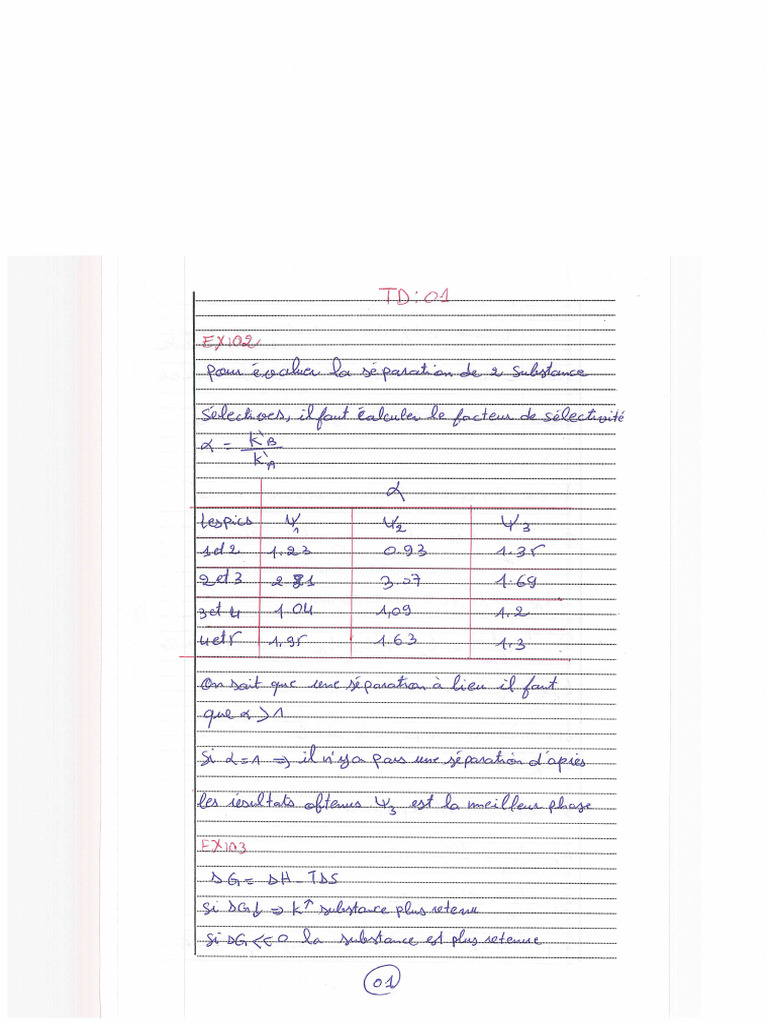 TD:01
EX102
pour évaluer la séparation de 2 substance
sélectives, il faut éalculer le facteur de sélectivité
α = k'B / k'A
α
les pics ψ1 ψ2 ψ3
1d2 1.23 0.93 1.35
2et3 2.81 3.07 1.69
3et4 1.04 1,09 1.2
4et5 1.95 1.63 1.3
On sait que une séparation à lieu il faut
que α > 1
Si α = 1 => il n'ya pas une séparation d'après
les résultats obtenus ψ3 est la meilleur phase
EX103
ΔG = ΔH - TΔS
si ΔG↓ => K↑ substance plus retenu
si ΔG << 0 la substance est plus retenue
01